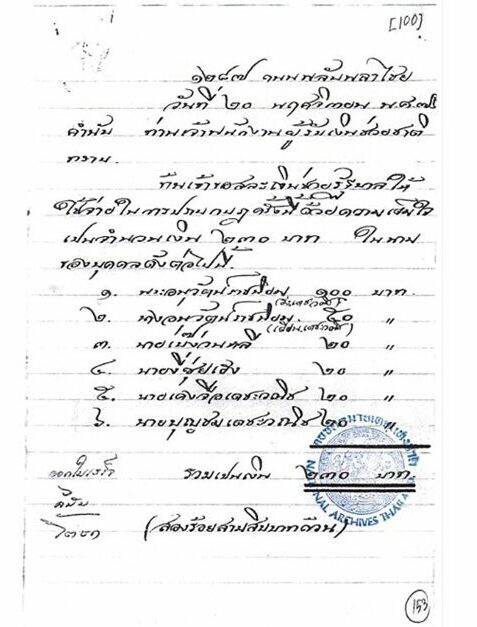 [100]
๑๒๘๗ ถนนพลับพลาไชย
วันที่ ๒๐ พฤศจิกายน พ.ศ. ๗๖
คำนับ ท่านเจ้าพนักงานผู้รับเงินช่วยชาติ
ทราบ
ข้าพเจ้าขอสละเงินช่วยรัฐบาลให้
ใช้จ่ายในการปราบกบฏครั้งนี้ด้วยความเต็มใจ
เป็นจำนวนเงิน ๒๓๐ บาท ในนาม
ของบุคคลดังต่อไปนี้.
๑. พระอนุวัตน์ราชนิยม ๑๐๐ บาท.
๒. นางอนุวัตน์ราชนิยม ๕๐ "
๓. ๒๐ "
๔. ๒๐ "
๕. เตชะวณิช ๒๐ "
๖. นายบุญชม เตชะวณิช ๒๐ "
ออกใบเสร็จ รวมเป็นเงิน ๒๓๐ บาท.
(สองร้อยสามสิบบาทถ้วน)
NATIONAL ARCHIVES THAILAND
153